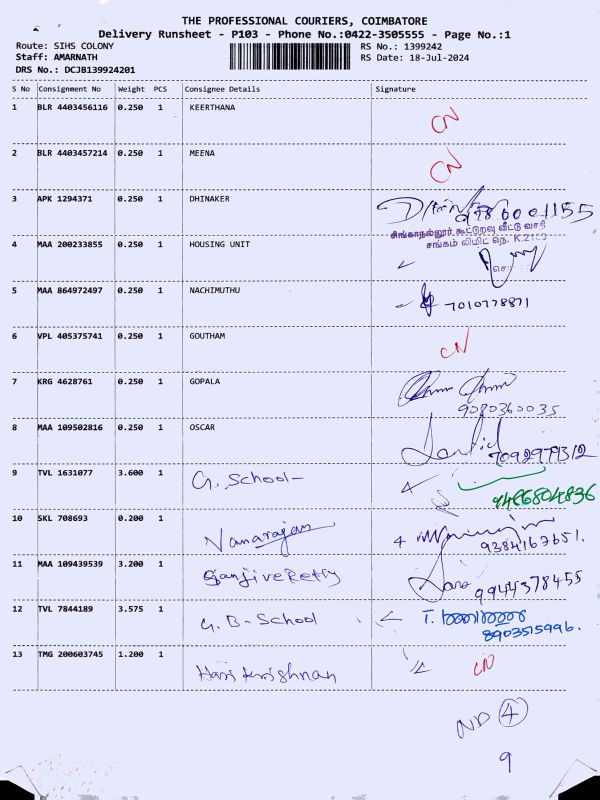 THE PROFESSIONAL COURIERS, COIMBATORE
Delivery Runsheet - P103 - Phone No.:0422-3505555 - Page No.:1
Route: SIHS COLONY RS No.: 1399242
Staff: AMARNATH RS Date: 18-Jul-2024
DRS No.: DCJB139924201
S No Consignment No Weight PCS Consignee Details Signature
1 BLR 4403456116 0.250 1 KEERTHANA CN
2 BLR 4403457214 0.250 1 MEENA CN
3 APK 1294371 0.250 1 DHINAKER
சிங்காநல்லூர் கூட்டுறவு வீட்டு வசதி
4 MAA 200233855 0.250 1 HOUSING UNIT சங்கம் லிமிட் நெ.
5 MAA 864972497 0.250 1 NACHIMUTHU 7010778871
6 VPL 405375741 0.250 1 GOUTHAM CN
7 KRG 4628761 0.250 1 GOPALA
9080360035
8 MAA 109502816 0.250 1 OSCAR
7092979312
9 TVL 1631077 3.600 1 G. School-
9486804836
10 SKL 708693 0.200 1 Vanarajan
9384167651.
11 MAA 109439539 3.200 1 Sanjive Retty
9944378455
12 TVL 7844189 3.575 1 G. B- School
8903515996.
13 TMG 200603745 1.200 1 Hari krishnan CN
ND 4
9